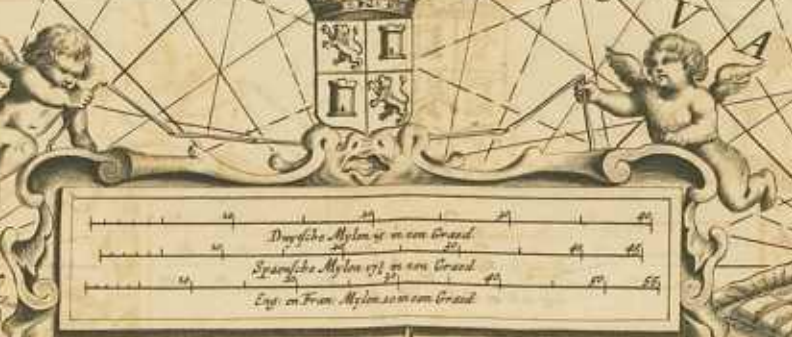 V A
10 20 30 40
Duytsche Mylen 15 in een Graed
10 20 30 40 45
Spaensche Mylen 17½ in een Graed
10 20 30 40 50 55
Eng: en Fran: Mylen 20 in een Graed